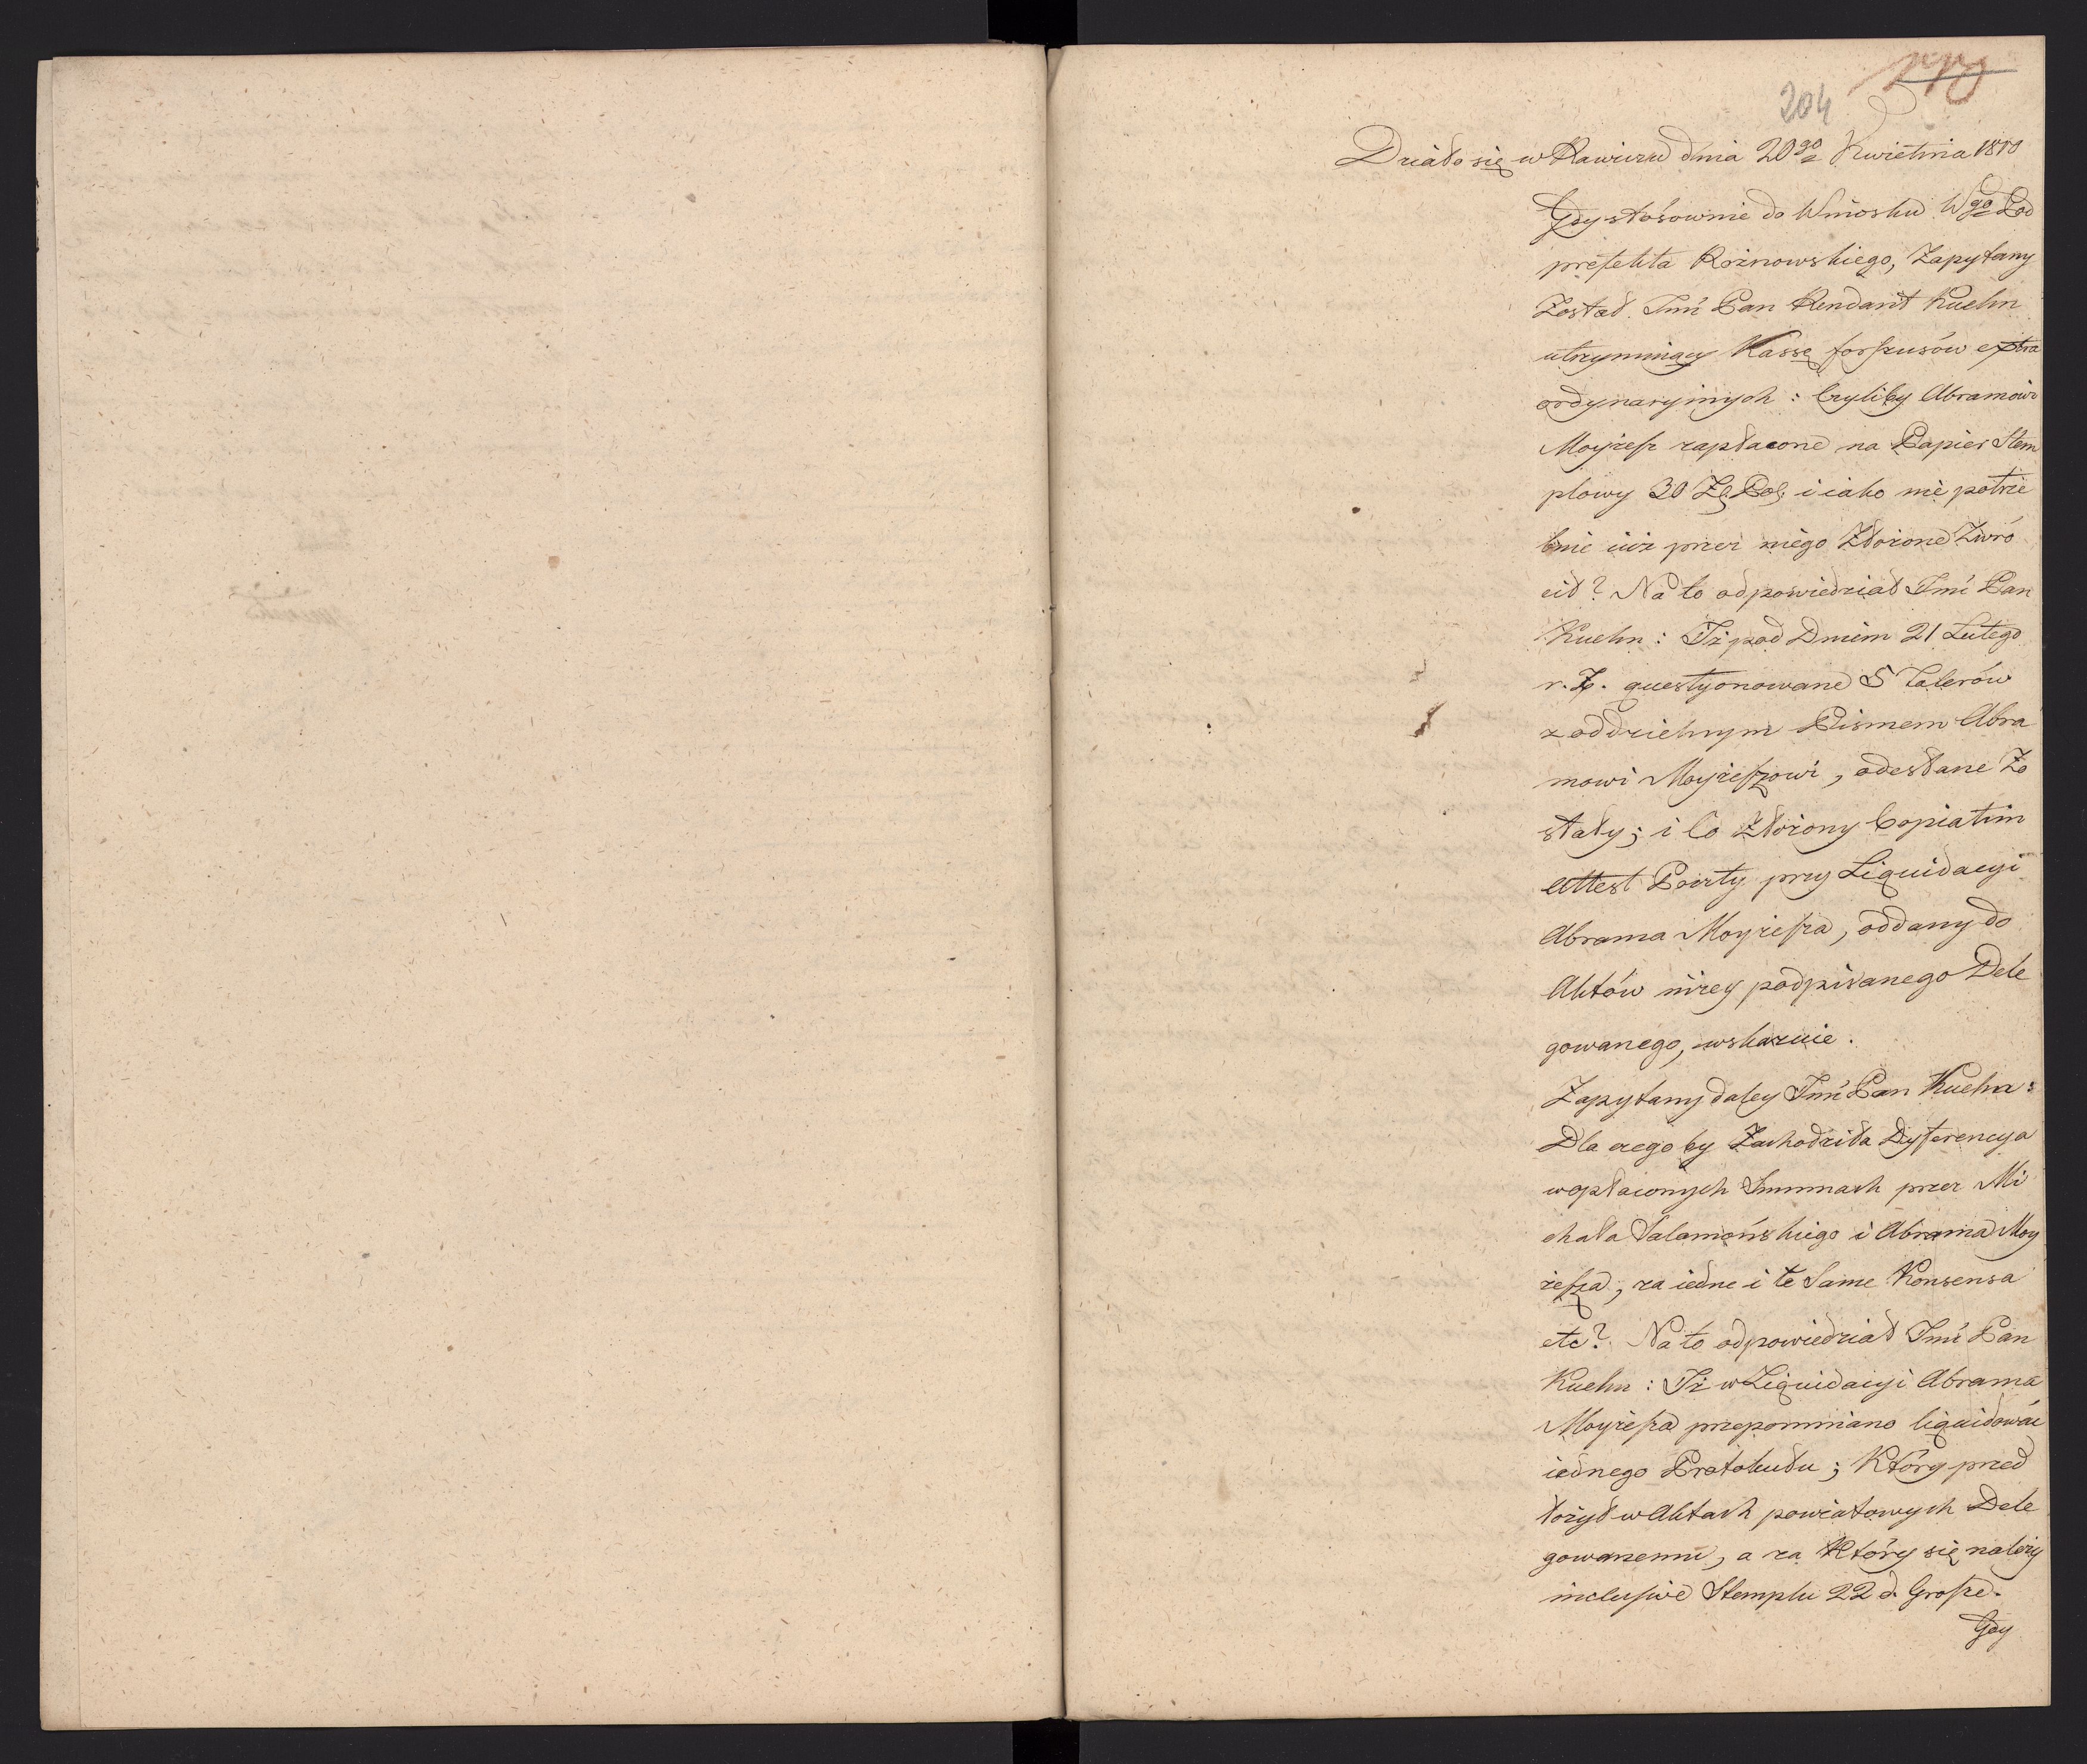 204
Działo się w Rawiczu dnia 20go Kwietnia 1810
Gdy stósownie do Wniosku Wgo Pod
prefekta Rożnowskiego, Zapytany
Został Jmć Pan Rendant Kuehn
utrzymuiący Kassę forszusów extra
ordynaryinych: Czyliby Abramowi
Moyżesz zapłacone na Papier Stem
plowy 30 Zł. Pol. i iako nie potrze
bnie iuż przez niego Złożone Zwró
cił? Na to odpowiedział Jmć Pan
Kuehn: Iż pod Dniem 21 Lutego
r. Z. questyonowane 5 Talerów
z oddzielnym Pismem Abra
mowi Moyżeszowi, odesłane Zo
stały; i Co złożony Copiatim
Attest Poczty przy Liquidacyi
Abrama Moyżesza, oddany do
Aktów niżey podpisanego Dele
gowanego, wskazuie.
Zapytany daley Jmć Pan Kuehn:
Dla czego by Zachodziła Dyferencya
w opłaconych Summach przez Mi
chała Salamońskiego i Abrama Moy
żesza, za iedne i te Same Konsensa
etc? Na to odpowiedział Jmć Pan
Kuehn: Iż w Liquidacyi Abrama
Moyżesza przepomniano liquidować
iednego Protokułu; Który przed
łożył w Aktach powiatowych Dele
gowanemu, a za Który się należy
inclusive Stemplu 22 d. Grosze.
Gdy